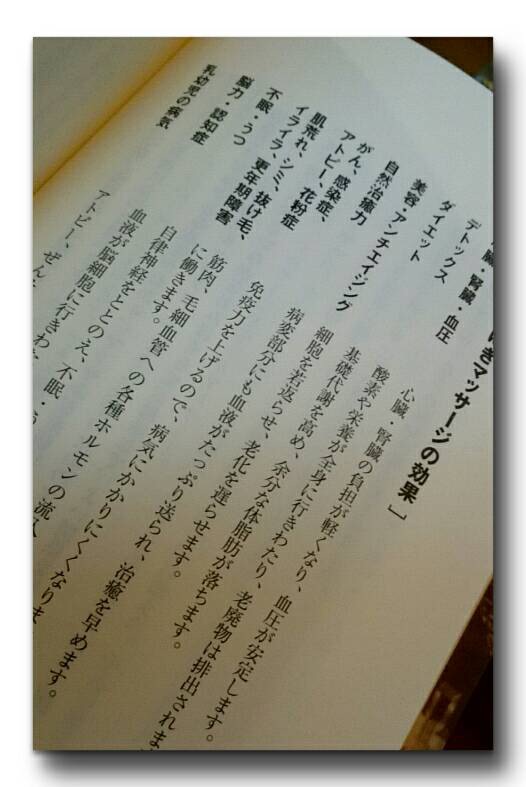 ぎマッサージの効果］
臓・腎臓・血圧
心臓、腎臓の負担が軽くなり、血圧が安定します。
デトックス
酸素や栄養が全身に行きわたり、老廃物は排出されま
ダイエット
基礎代謝を高め、余分な体脂肪が落ちます。
美容・アンチエイジング
細胞を若返らせ、老化を遅らせます。
自然治癒力
病変部分にも血液がたっぷり送られ、治癒を早めます。
がん、感染症、
アトピー、花粉症
免疫力を上げるので、病気にかかりにくくなりま
肌荒れ、シミ、抜け毛、
イライラ、更年期障害
筋肉、毛細血管への各種ホルモンの流入
に働きます。
不眠・うつ
自律神経をととのえ、不眠・う
脳力・認知症
血液が脳細胞に行きわた
乳幼児の病気
アトピー、ぜん